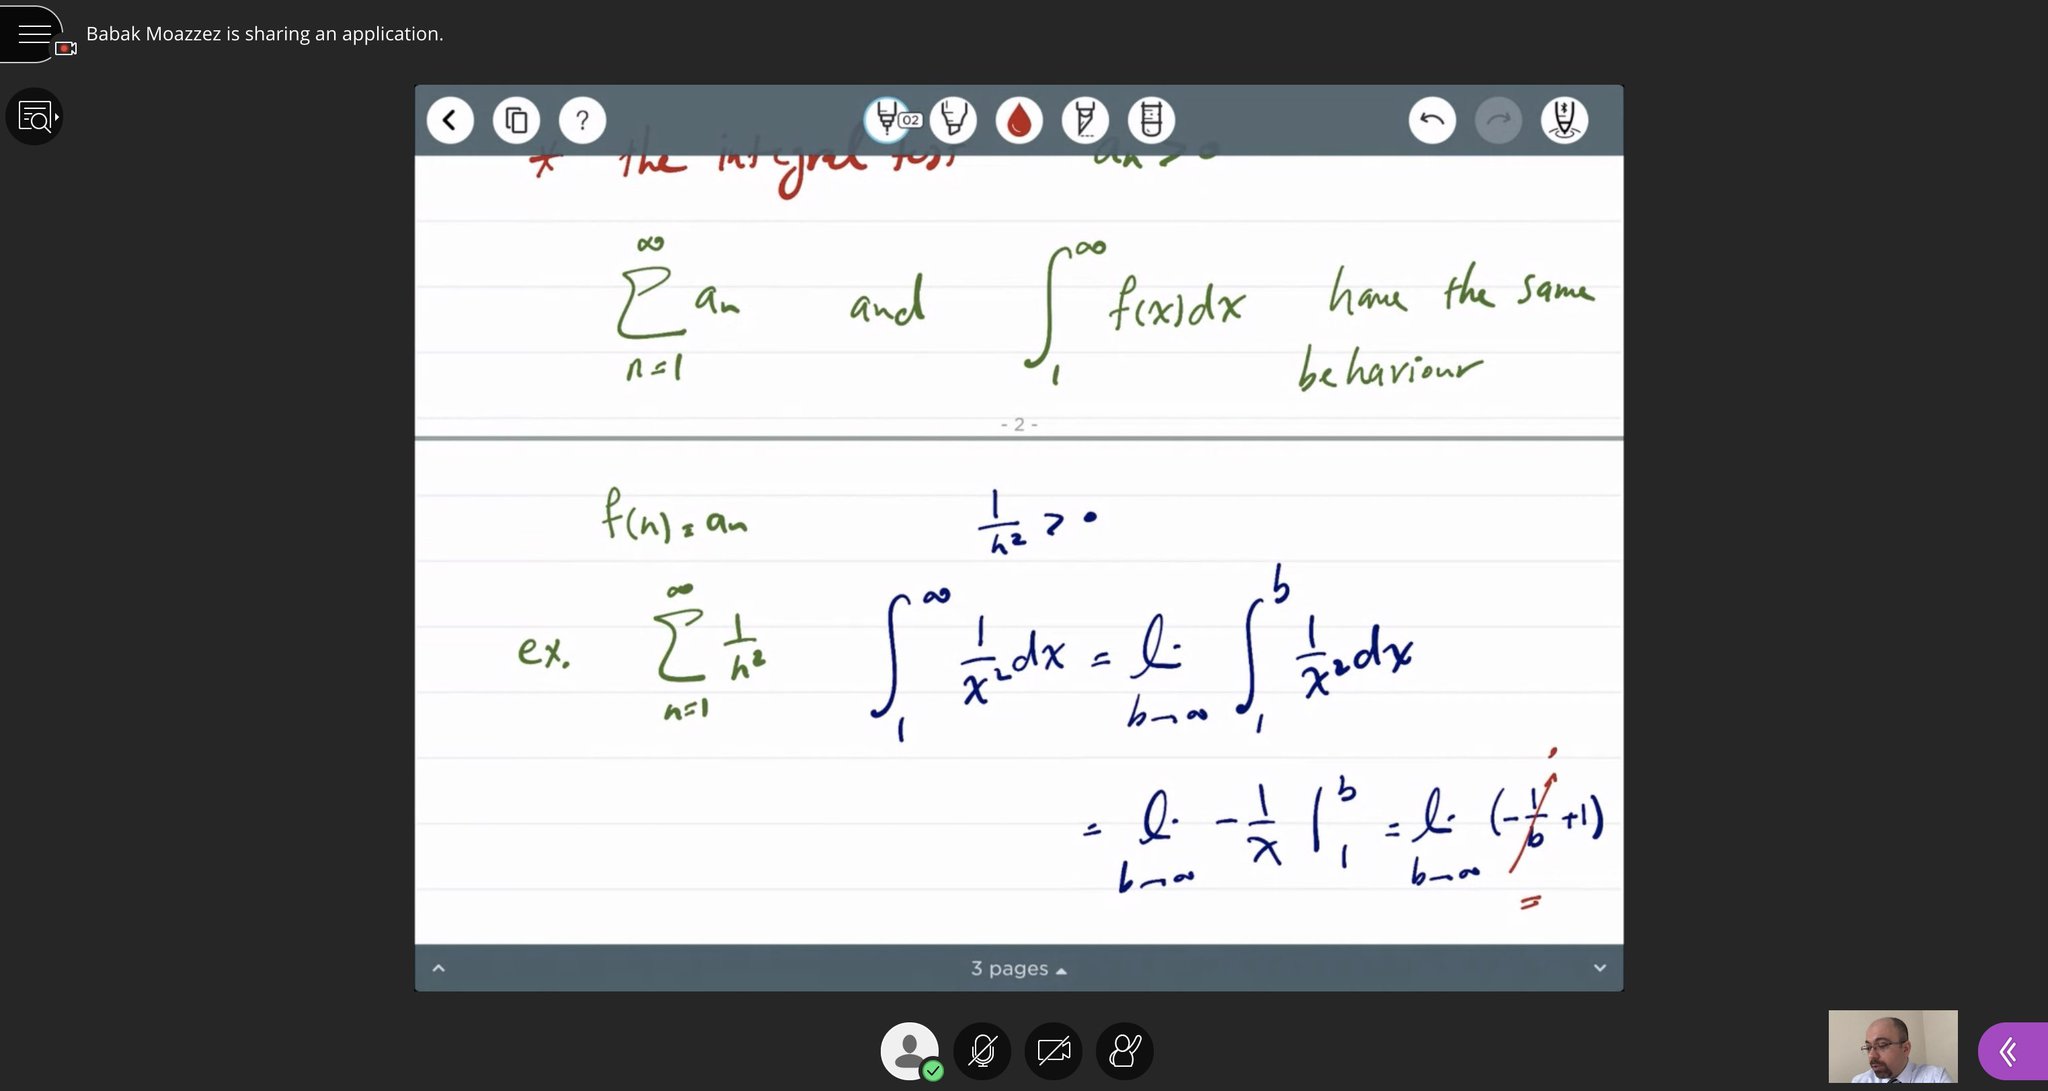 Babak Moazzez is sharing an application.
02
* the integral test an > 0
∞ ∞
∑ an and ∫ f(x)dx have the same
n=1 1 behaviour
- 2 -
f(n) = an 1/n² > 0
ex. ∞ ∑ n=1 1/n² ∫₁^∞ 1/x² dx = li b→∞ ∫₁^b 1/x² dx
= li b→∞ -1/x |₁^b = li b→∞ (-1/b + 1)
=
3 pages